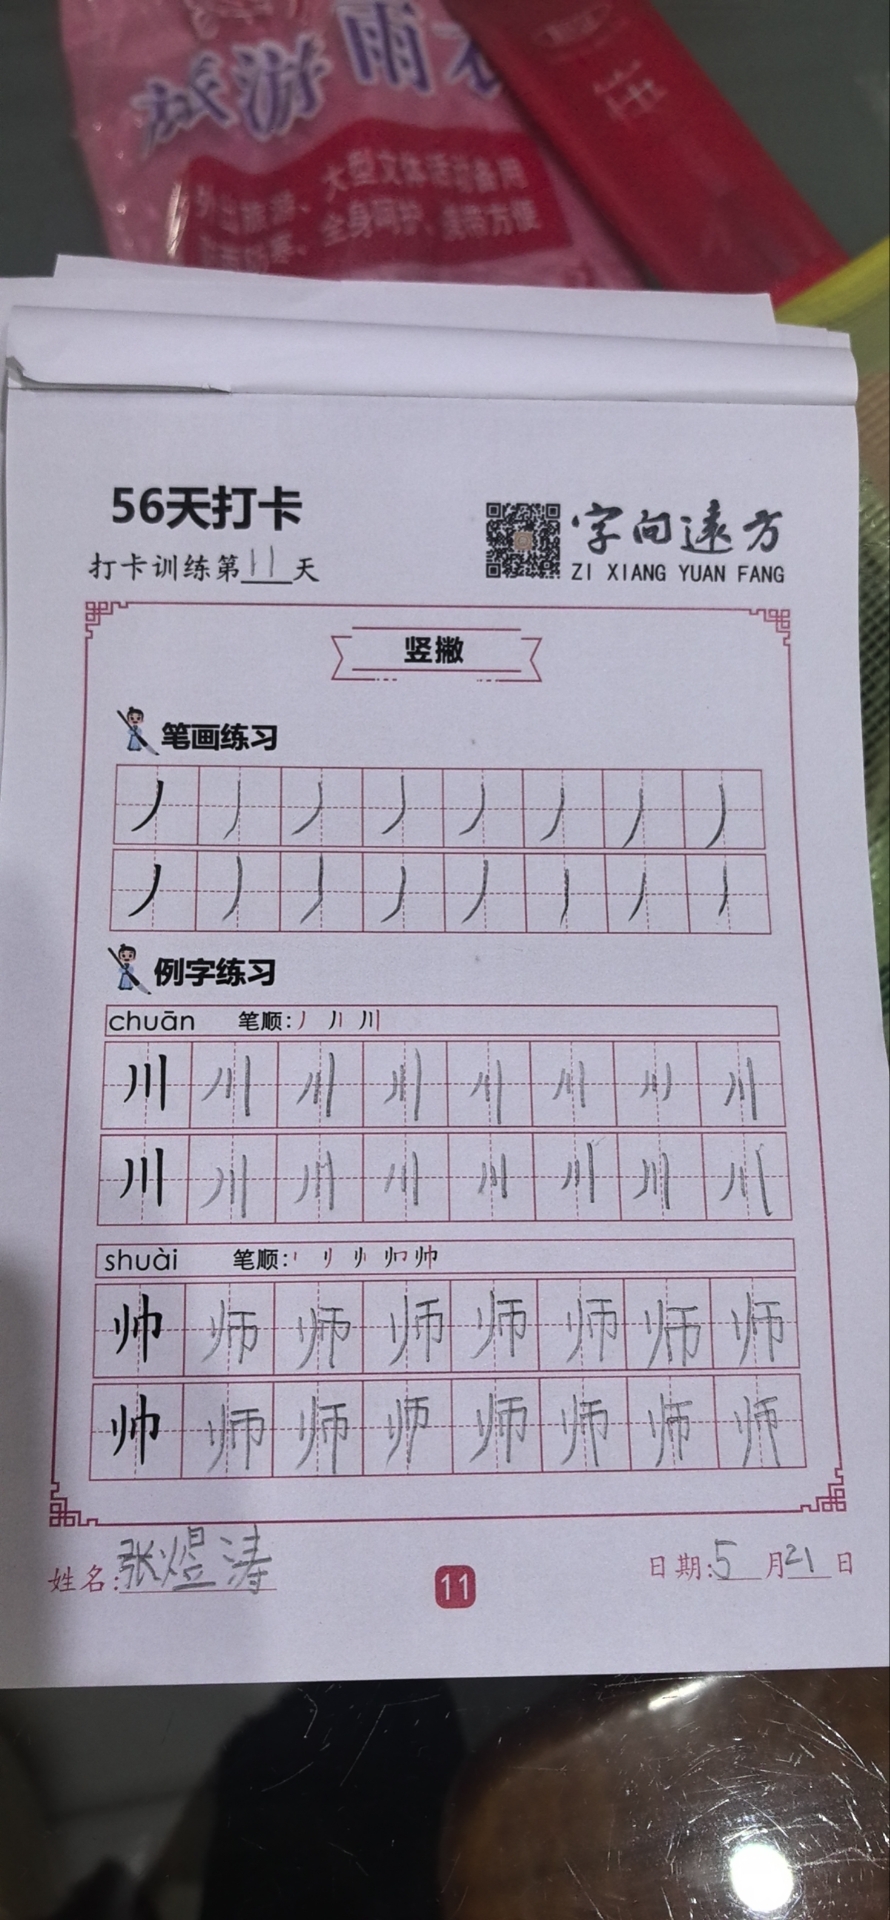 旅游雨衣
大型文体活动备用
全身呵护、携带方便
56天打卡
打卡训练第11天
字向远方
ZI XIANG YUAN FANG
竖撇
笔画练习
丿 丿 丿 丿 丿 丿 丿 丿
丿 丿 丿 丿 丿 丿 丿 丿
例字练习
chuān 笔顺: 丿 丿丨 川
川 川 川 川 川 川 川 川
川 川 川 川 川 川 川 川
shuài 笔顺:
帅 师 师 师 师 师 师 师
帅 师 师 师 师 师 师 师
姓名:张煜涛
11
日期:5月21日